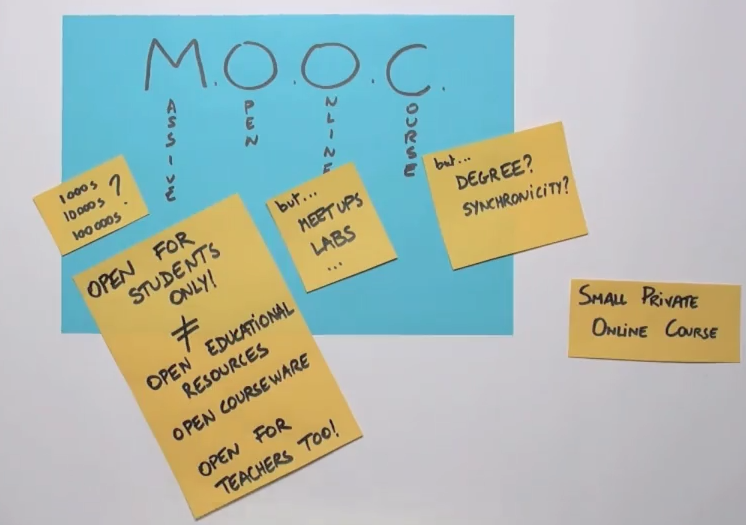 M.O.O.C.
ASSIVE
PEN
NLINE
OURSE
1000s
10000s ?
100000s
OPEN FOR
STUDENTS
ONLY!
≠
OPEN EDUCATIONAL
RESOURCES
OPEN COURSEWARE
OPEN FOR
TEACHERS TOO!
but...
MEETUPS
LABS
...
but...
DEGREE?
SYNCHRONICITY?
SMALL PRIVATE
ONLINE COURSE